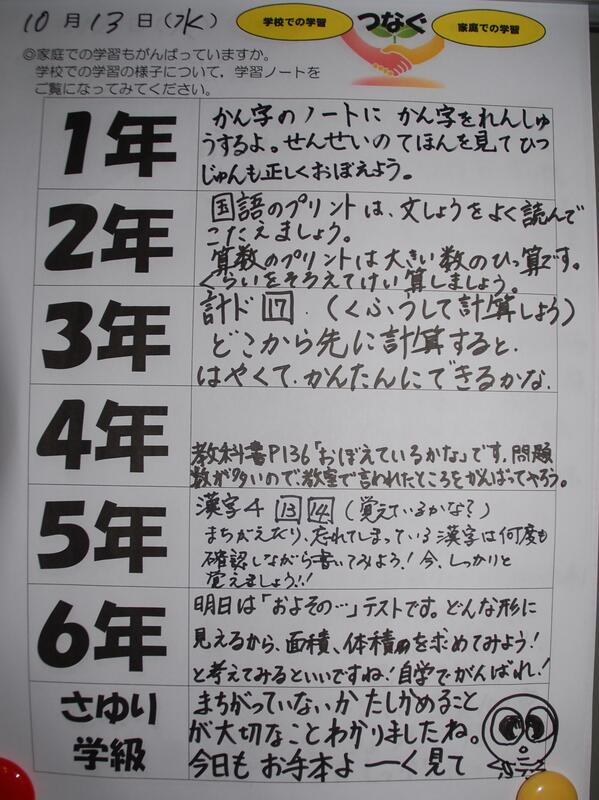 10月13日(水)
学校での学習 つなぐ 家庭での学習
◎家庭での学習もがんばっていますか。
学校での学習の様子について，学習ノートを
ご覧になってみてください。
1年
かん字のノートに かん字をれんしゅ
うするよ。せんせいの てほんを見て ひつ
じゅんも正しくおぼえよう。
2年
国語のプリントは、文しょうをよく読んで
こたえましょう。
算数のプリントは大きい数のひっ算です。
くらいをそろえてけい算しましょう。
3年
計ド 17 .(くふうして計算しよう)
どこから先に計算すると、
はやくて、かんたんにできるかな.
4年
教科書P136「おぼえているかな」です。問題
数が多いので、教室で言われたところをがんばってやろう。
5年
漢字4 13 14 (覚えているかな?)
まちがえたり、忘れてしまっている漢字は何度も
確認しながら書いてみよう!今、しっかりと
覚えましょう!!
6年
明日は「およその…」テストです。どんな形に
見えるから、面積、体積を求めてみよう!
と考えてみるといいですね!自学でがんばれ!
さゆり
学級
まちがっていないか たしかめること
が大切なことわかりましたね。
今日も お手本よーく見て